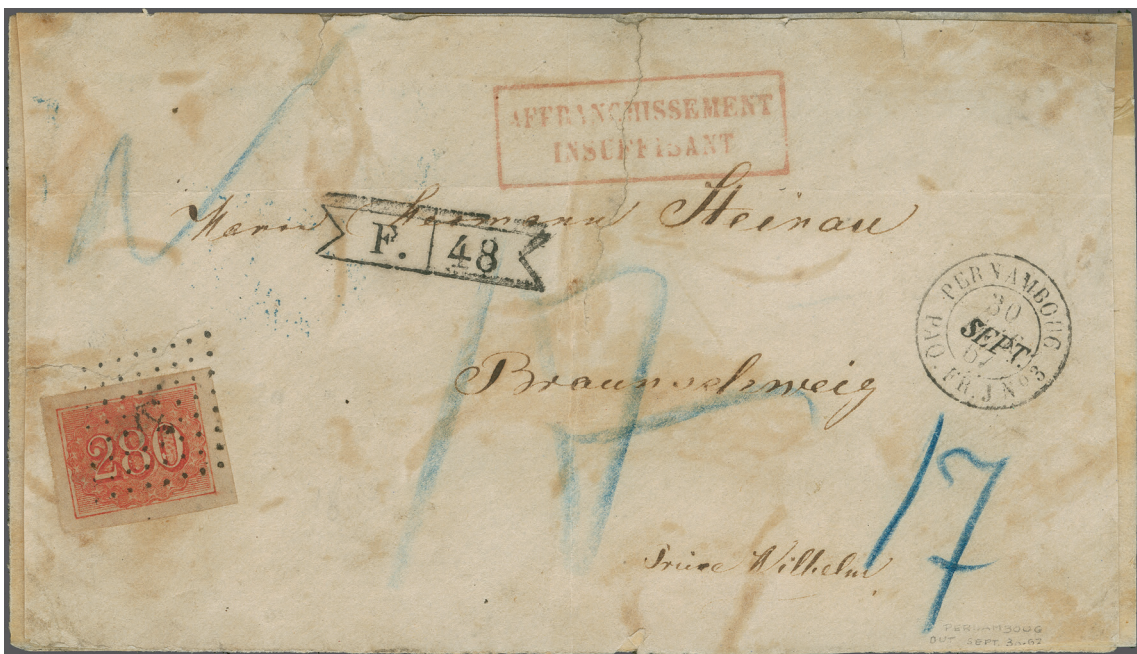 AFFRANCHISSEMENT
INSUFFISANT
Herrn Hermann Steinau
F. 48
PERNAMBOUG
30
SEPT.
67
PAQ. FR. J No 3
280
Braunschweig
17
Wilhelm
PERNAMBOUG
OUT SEPT. 30.67